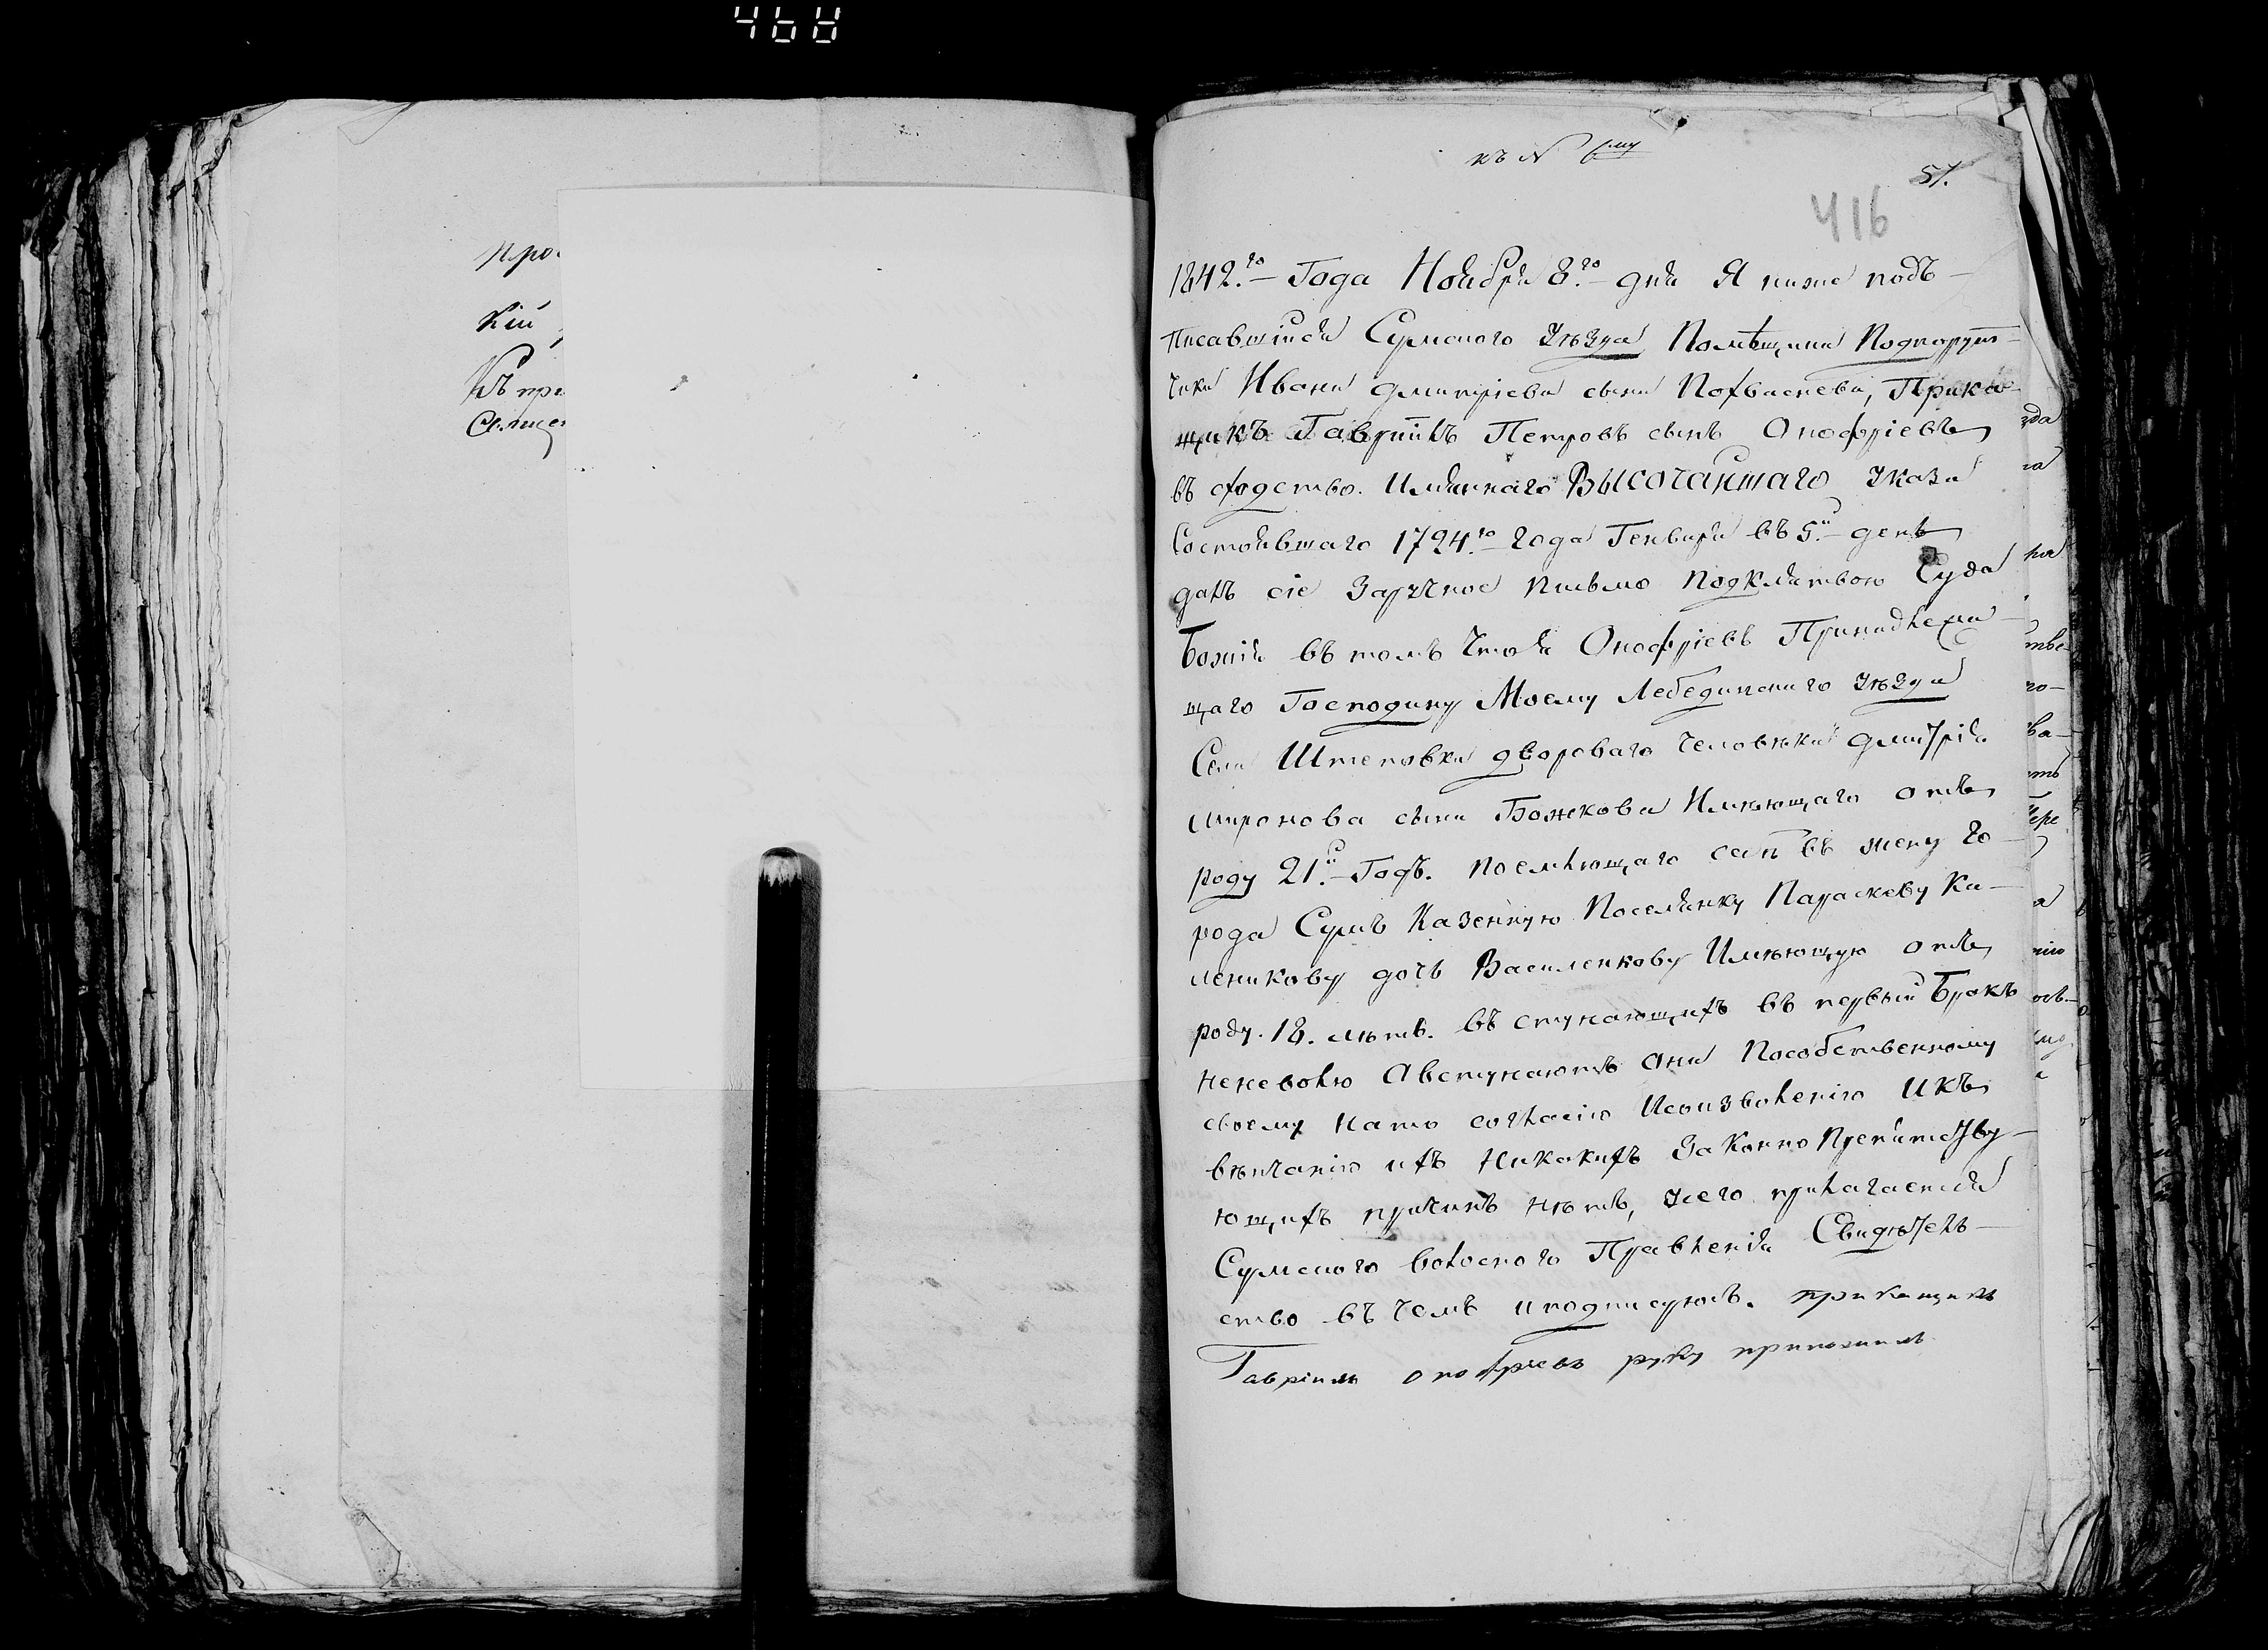 468
про
кій
Къ при
Свящ
къ N 6му
51.
416
1842.го Года Ноября 8.го дня Я ниже подъ-
писавшійся Сумского уѣзда Помѣщика Подпорут-
чика Ивана дмитріева сына Похвиснева, Прика-
щикъ Гавріилъ Петровъ сынъ Онофріевъ
въ сходство. Имяннаго Высочайшаго указа
Состоявшаго 1724.го года Генваря въ 5.й день
далъ сіе Заручное письмо подклятвою Суда
Божія въ томъ Чтоя Онофріевъ Принадлежа-
щаго Господину Моему Лебединскаго уѣзда
Села Штеповки двороваго человѣка дмитрія
миронова сына Божкова Имѣющаго отъ
роду 21.й Годъ. поемлющаго себѣ въ жену го-
рода Сумъ Казенную Поселянку Параскеву Ка-
леникову дочь Василенкову Имѣющую отъ
роду. 18. лѣтъ. въ ступающихъ въ первый Бракъ
неневолю Авступаютъ они Пособственному
своему нато согласію Исоизволенію Икъ
вѣнчанію ихъ Никакихъ Законно Препятству-
ющихъ причинъ нѣтъ, усего прилагается
Сумского волоского Правленія Свидѣтель-
ство въ чемъ иподписуюсь. прикащикъ
Гавріилъ онофріевъ руку приложилъ
зда
го
на
тве
го-
ва-
ть
чере